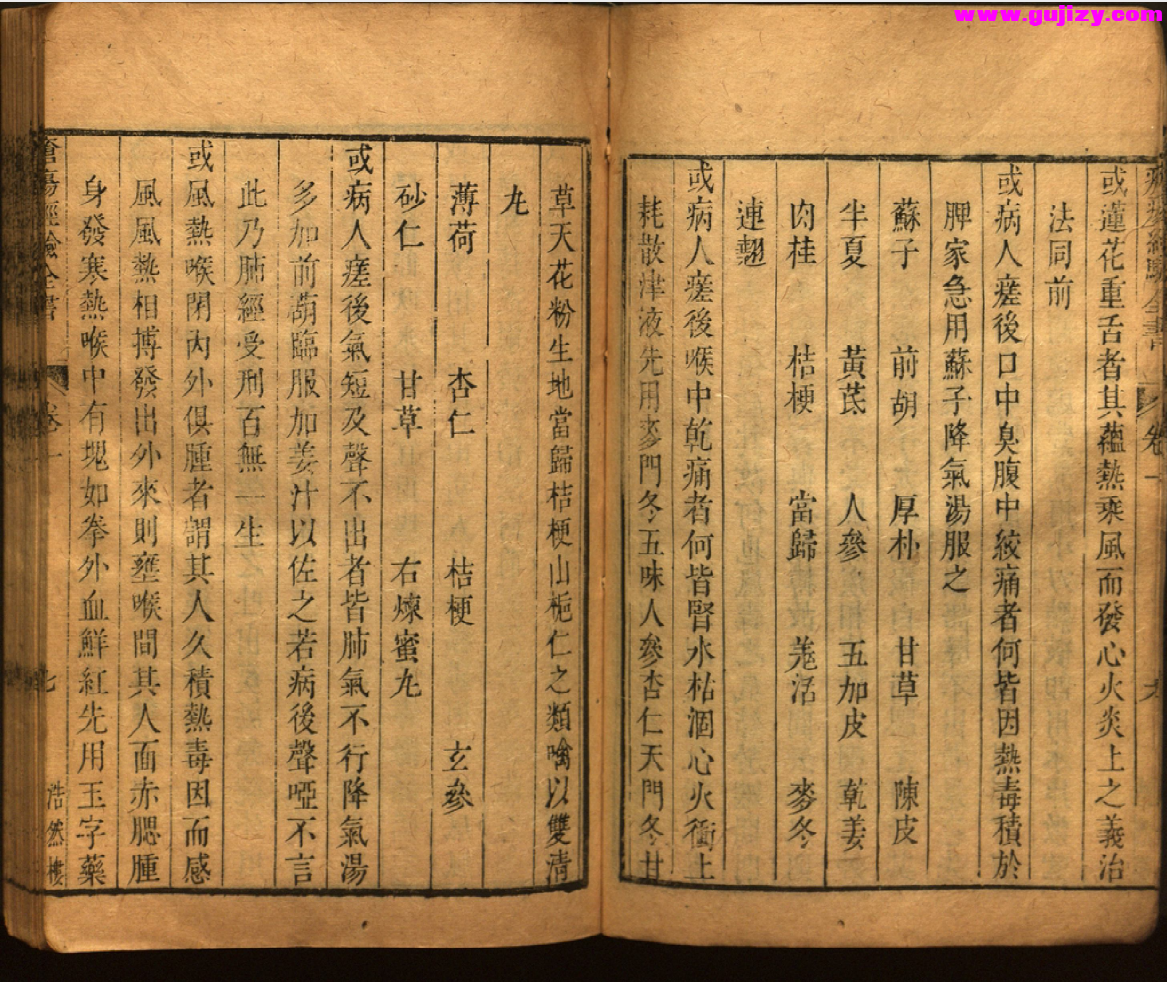 www.gujizy.com
或蓮花重舌者其蘊熱乘風而發心火炎上之義治
法同前
或病人瘥後口中臭腹中絞痛者何皆因熱毒積於
脾家急用蘇子降氣湯服之
蘇子 前胡 厚朴 甘草 陳皮
半夏 黃茋 人參 五加皮 乾姜
肉桂 桔梗 當歸 羗活 麥冬
連翹
或病人瘥後喉中乾痛者何皆腎水枯涸心火衝上
耗散津液先用麥門冬五味人參杏仁天門冬甘
草天花粉生地當歸桔梗山梔仁之類噙以雙清
丸
薄荷 杏仁 桔梗 玄參
砂仁 甘草 右煉蜜丸
或病人瘥後氣短及聲不出者皆肺氣不行降氣湯
多加前葫臨服加姜汁以佐之若病後聲啞不言
此乃肺經受刑百無一生
或風熱喉閉內外俱腫者謂其人久積熱毒因而感
風風熱相搏發出外來則壅喉間其人面赤腮腫
身發寒熱喉中有塊如拳外血鮮紅先用玉字藥
瘡瘍經驗全書 卷一 七 浩然樓